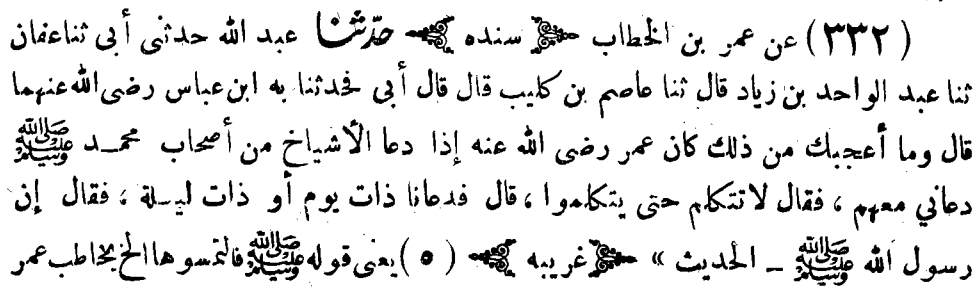 (٣٣٢) عن عمر بن الخطاب ﴿ سنده ﴾ حدّثنا عبد الله حدثنى أبى ثنا عفان
ثنا عبد الواحد بن زياد قال ثنا عاصم بن كليب قال قال أبى فحدثنا به ابن عباس رضى الله عنهما
قال وما أعجبك من ذلك كان عمر رضى الله عنه إذا دعا الأشياخ من أصحاب محمد ﷺ
دعاني معهم ، فقال لا تتكلم حتى يتكلموا ، قال فدعانا ذات يوم أو ذات ليلة ، فقال إن
رسول الله ﷺ ـ الحديث » ﴿ غريبه ﴾ (٥) يعنى قوله ﷺ فالتمسوها الخ يخاطب عمر